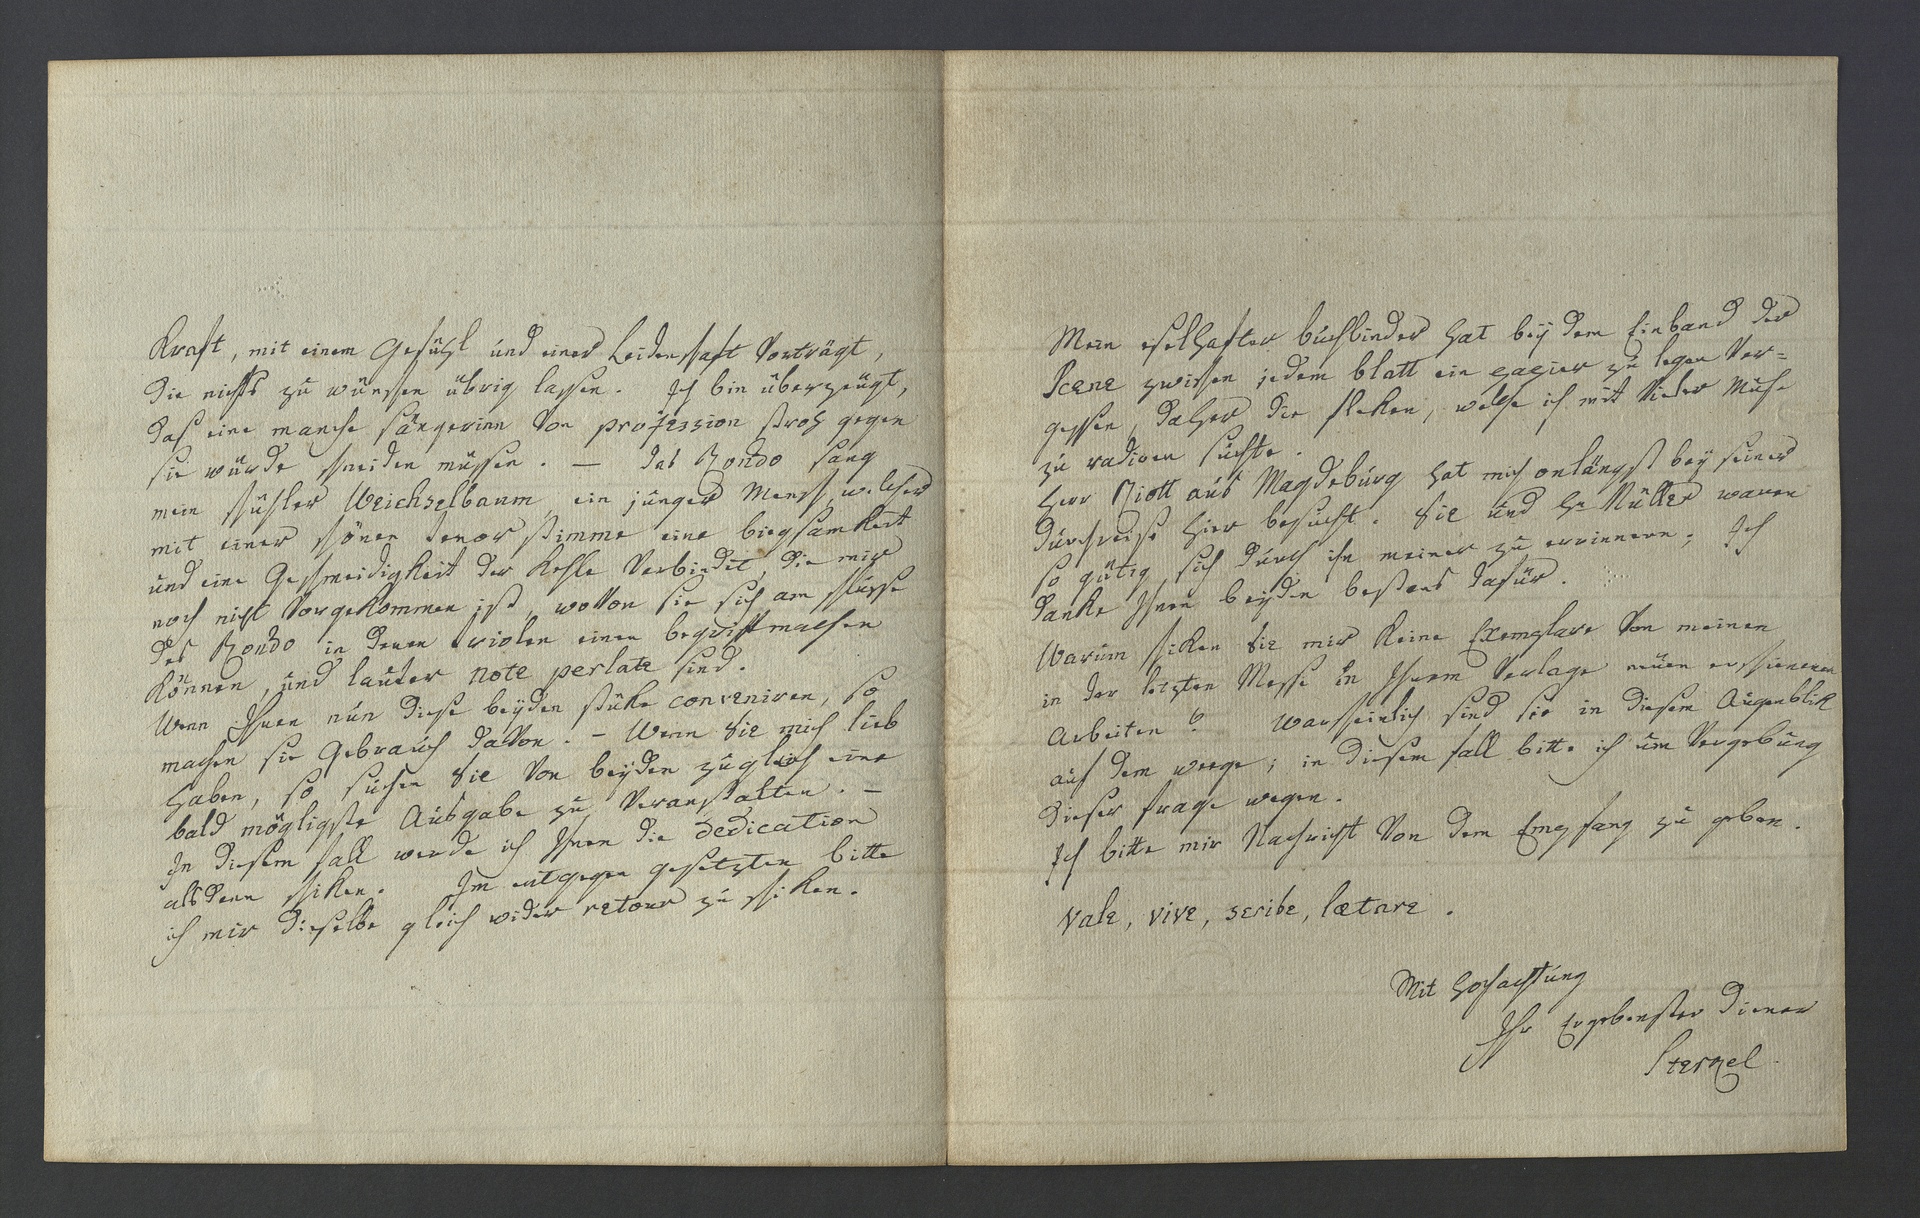 Kraft, mit einem Gefühl und einer Leidenschaft vorträgt,
die nichts zu wünschen übrig lassen. Ich bin überzeugt,
daß eine manche Sängerinn von profession stroh gegen
sie würde schneiden müssen. — Das Rondo sang
mein schühler Weichselbaum, ein junger Mensch, welcher
mit einer schönen Tenor stimme eine biegsamkeit
und eine Geschmeidigkeit der Kehle verbindet, die mir
noch nicht vorgekommen ist, wovon sie sich am schlusse
des Rondo in denen triolen einen begriff machen
können, und lauter note perlate sind.
Wenn Ihnen nun diese beyden stüke conveniren, so
machen sie Gebrauch davon. – Wenn Sie mich lieb
haben, so suchen Sie von beyden zugleich eine
bald mögligste Ausgabe zu veranstalten. –
In diesem fall werde ich Ihnen die dedication
alsdenn schiken. Im entgegen gesetzten bitte
ich mir dieselbe gleich wider retour zu schiken.
Mein eselhafter buchbinder hat bey dem Einband der
Scene zwischen jedem blatt ein papier zu legen ver=
gessen, daher die fleken, welche ich mit vieler Mühe
zu radiren suchte.
Herr Riott aus Magdeburg hat mich onlängst bey seiner
durchreise hier besucht. Sie und Hr Müller waren
so gütig sich durch ihn meiner zu errinnern; Ich
danke Ihnen beyden bestens dafür.
Warum schiken Sie mir keine Exemplare von meinen
in der letzten Messe in Ihrem Verlage neuen erschienenen
Arbeiten? Warscheinlich sind sie in diesem Augenblik
auf dem weege; in diesem fall bitte ich um Vergebung
dieser frage wegen.
Ich bitte mir Nachricht von dem Empfang zu geben.
Vale, vive, scribe, lætare.
Mit Hochachtung
Ihr Ergebenster Diener
Sterkel